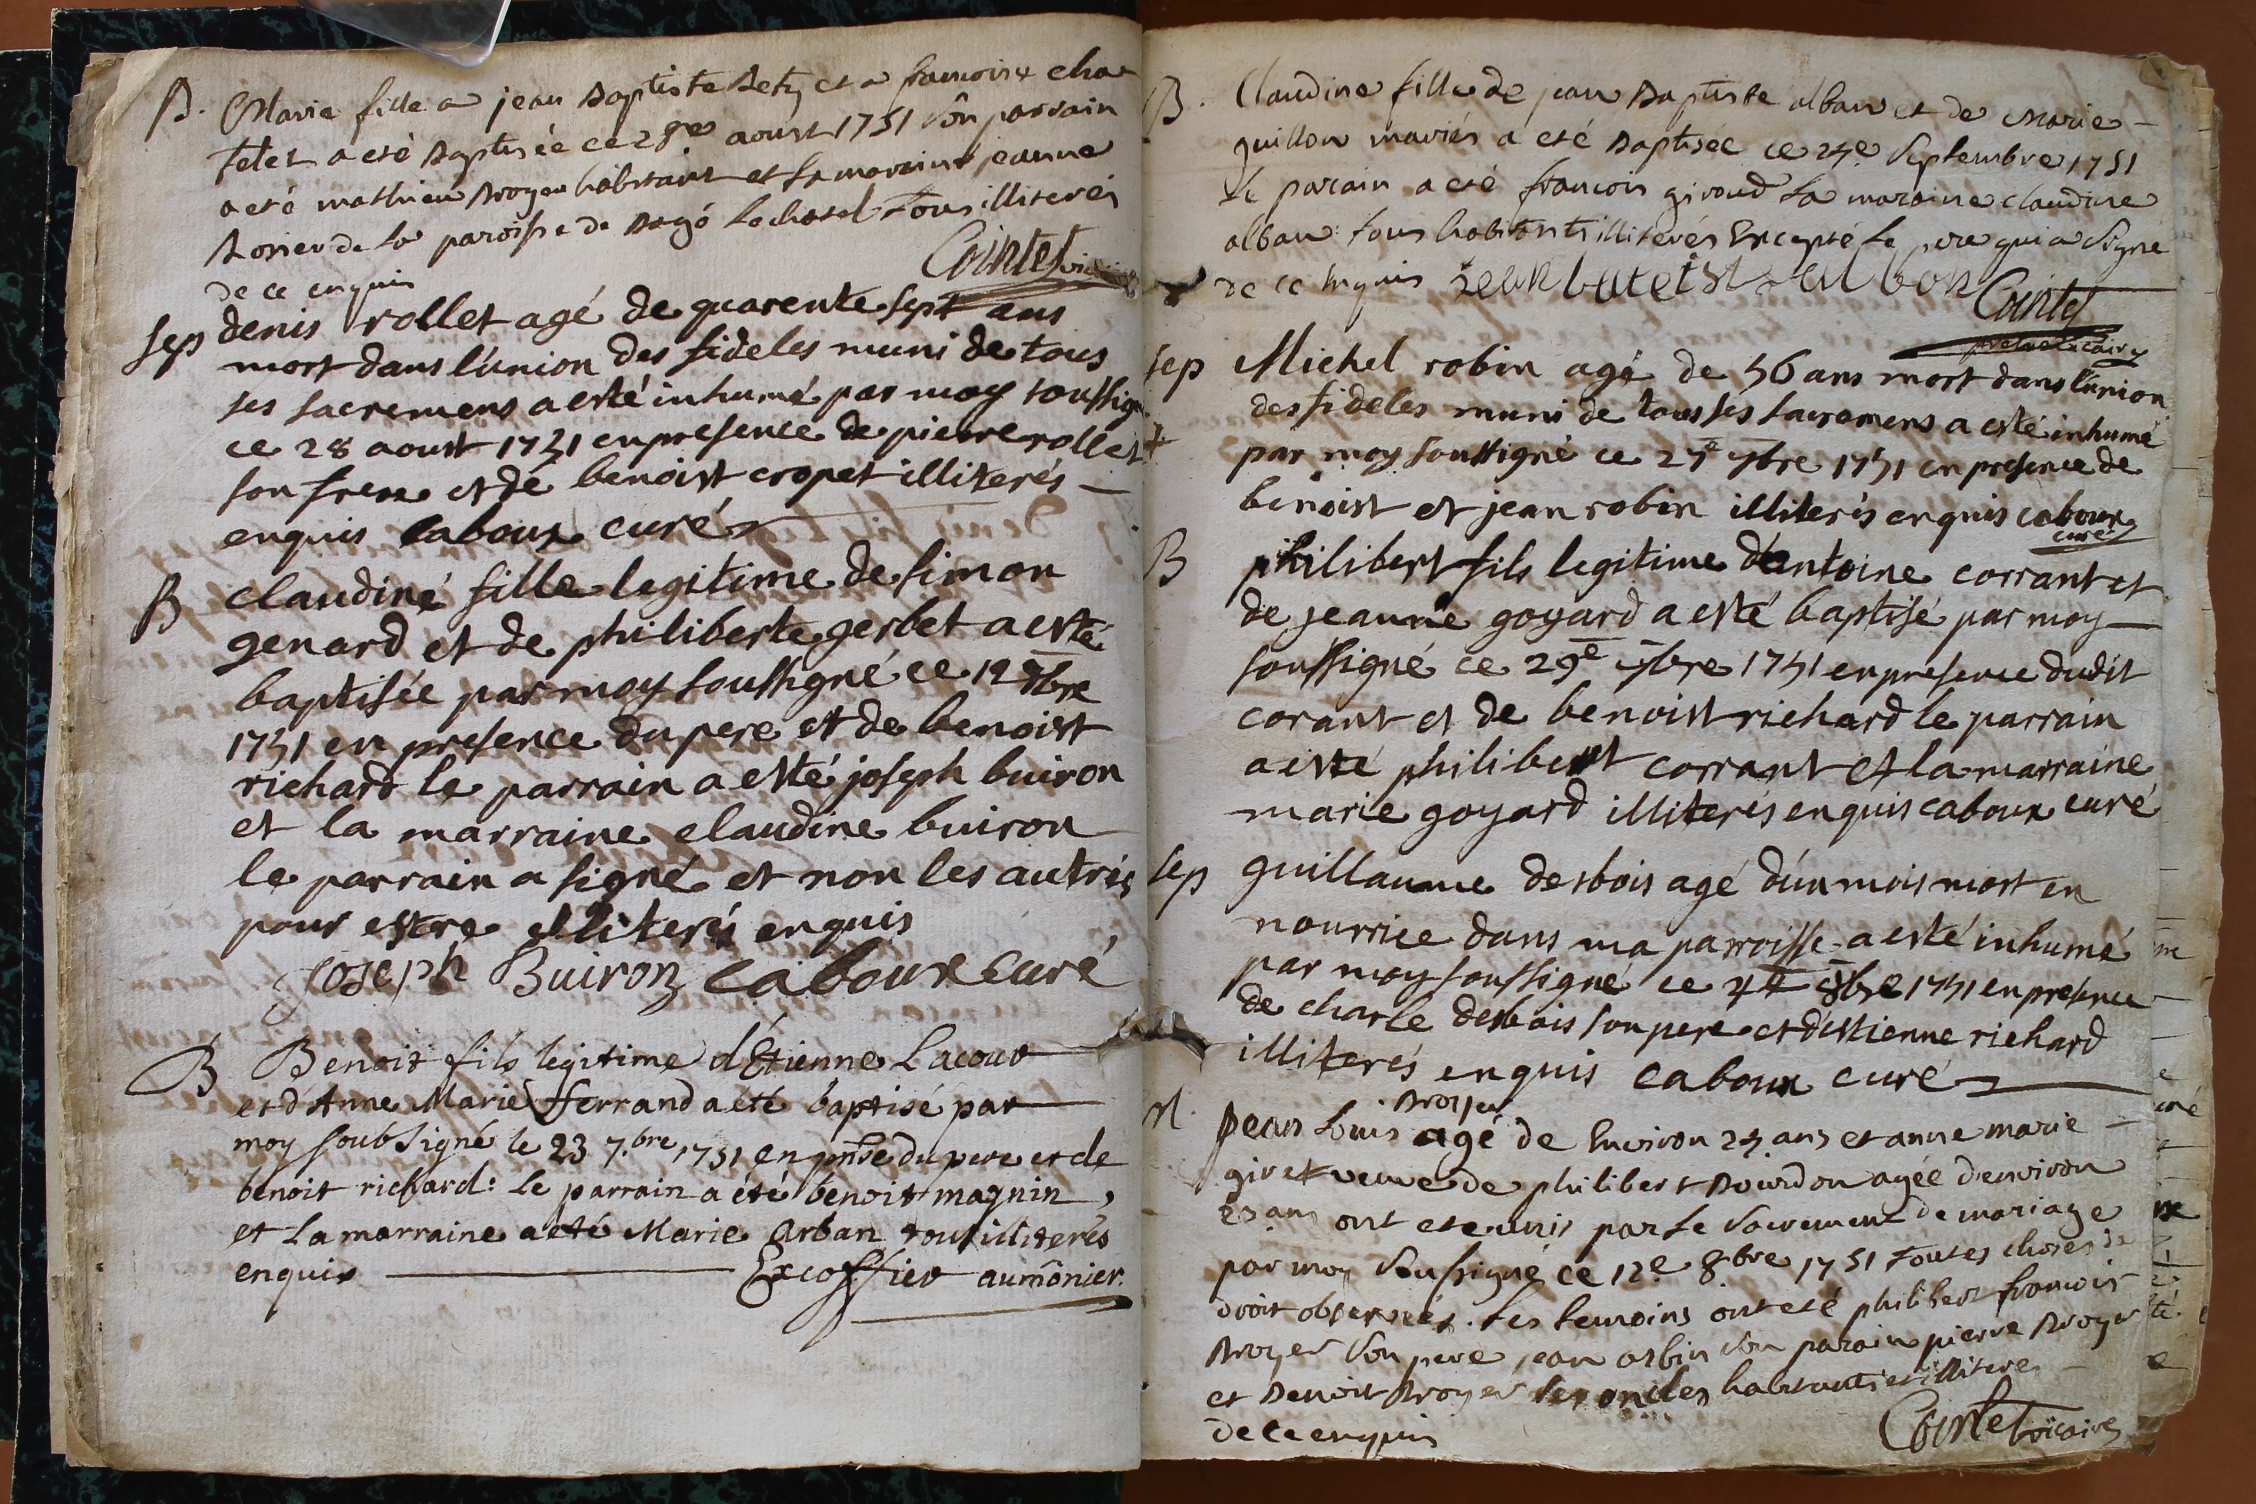 B. Marie fille a jean Baptiste Bety et a francoise cha
telet a eté Baptisée ce 28me aoust 1731 son parrain
a eté mathieu Broyer habitant et la maraine jeanne
Rosier de la paroisse de Bagé Lechatel tous illiterés
de ce enquis Cointet vic
sep denis rollet agé de quarente sept ans
mort dans l'union des fideles muni de tous
ses sacremens a esté inhumé par moy soussigné
ce 28 aoust 1731 en presence de pierre rollet
son frere et de benoist cropet illiterés
enquis caboux curé
B claudine fille legitime de simon
genard et de philiberte gerbet a esté
baptisée par moy soussigné ce 12 7bre
1731 en presence du pere et de benoist
richard le parrain a esté joseph buiron
et la marraine claudine buiron
le parrain a signé et non les autres
pour estre illiterés enquis
joseph Buiron caboux curé
B Benoit fils legitime d'Etienne Lacour
et d'Anne Marie ferrand a eté baptisé par
moy soubsigné le 23 7.bre 1731 en pnce du pere et de
benoit richard: le parrain a été benoit magnin,
et la marraine a eté Marie Arban tous illiterés
enquis Excoffier aumônier.
B. Claudine fille de jean Baptiste alban et de Marie
guillon mariés a eté Baptisée ce 27e Septembre 1731
le parain a eté francois giroud la maraine claudine
alban tous habitants illiterés Excepté le pere qui a signé
de ce enquis jean batetist alban Cointet
vicaire
sep Michel robin agé de 56 ans mort dans l'union
des fideles muni de tous ses sacremens a esté inhumé
par moy soussigné ce 27e 7bre 1731 en presence de
benoist et jean robin illiterés enquis caboux
curé
B philibert fils legitime d'antoine corrant et
de jeanne goyard a esté baptisé par moy
soussigné ce 29e 7bre 1731 en presence dudit
corant et de benoist richard le parrain
a esté philibert corrant et la marraine
marie goyard illiterés enquis caboux curé
sep guillaume desbois agé d'un mois mort en
nourrice dans ma parroisse a esté inhumé
par moy soussigné ce 4e 8bre 1731 en presence
de charle desbois son pere et d'estienne richard
illiterés enquis caboux curé
M. Broyer
jean Louis agé de Environ 27 ans et anne marie
giret veuve de philibert Bourdon agée d'environ
ans ont eté unis par le sacrement de mariage
par moy soussigné ce 12e 8bre 1731 toutes choses de
droit observées. les temoins ont eté philibert francois
Broyer son pere jean arbin son parain pierre Broyer
et Benoit Broyer ses oncles habitants et illiteres
de ce enquis Cointet vicaire